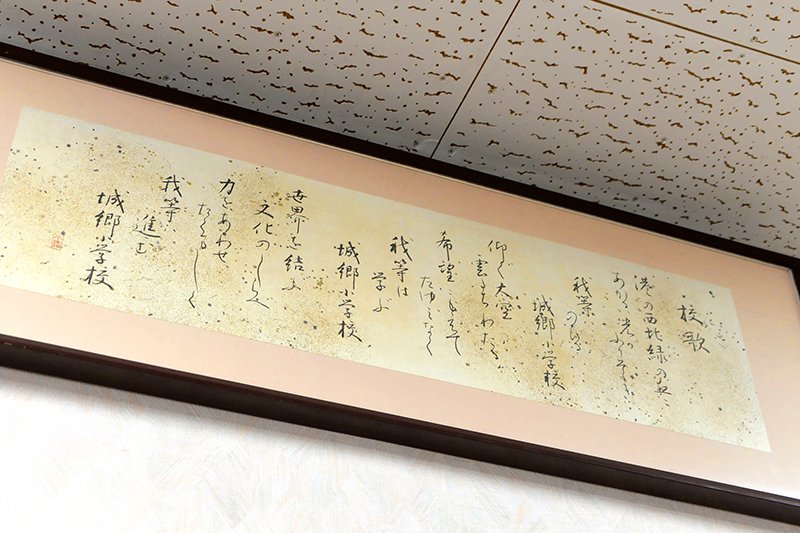 校歌
港の西北緑の丘に
光がふりそそぐ
我等
城郷小学校
仰ぐ大空
雲
希望にもえて
たゆみなく
我等は
学ぶ
城郷小学校
世界を結ぶ
文化のしらべ
力をあわせ
たくましく
我等
進む
城郷小学校